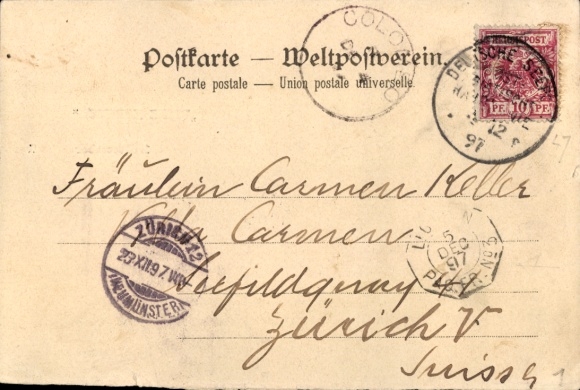 COLOMBO
Postkarte — Weltpostverein.
Carte postale — Union postale universelle.
REICHSPOST
10 PF
DEUTSCHE
12
97
Fräulein Carmen Keller
Villa Carmen
Seefeldquay
Zürich V
Suisse
ZÜRICH 12
23.XII.97.VII
(NEUMÜNSTER)
5
DEC
97